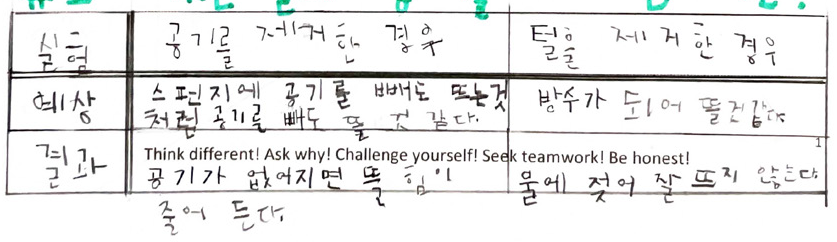 실험 공기를 제거한 경우 털을 제거한 경우
예상 스펀지에 공기를 빼도 뜨는것 처럼 공기를 빼도 뜰 것 같다. 방수가 되어 뜰건같다
1
결과 Think different! Ask why! Challenge yourself! Seek teamwork! Be honest!
공기가 없어지면 뜰 힘이 물에 젖어 잘 뜨지 않는다
줄어 든다.